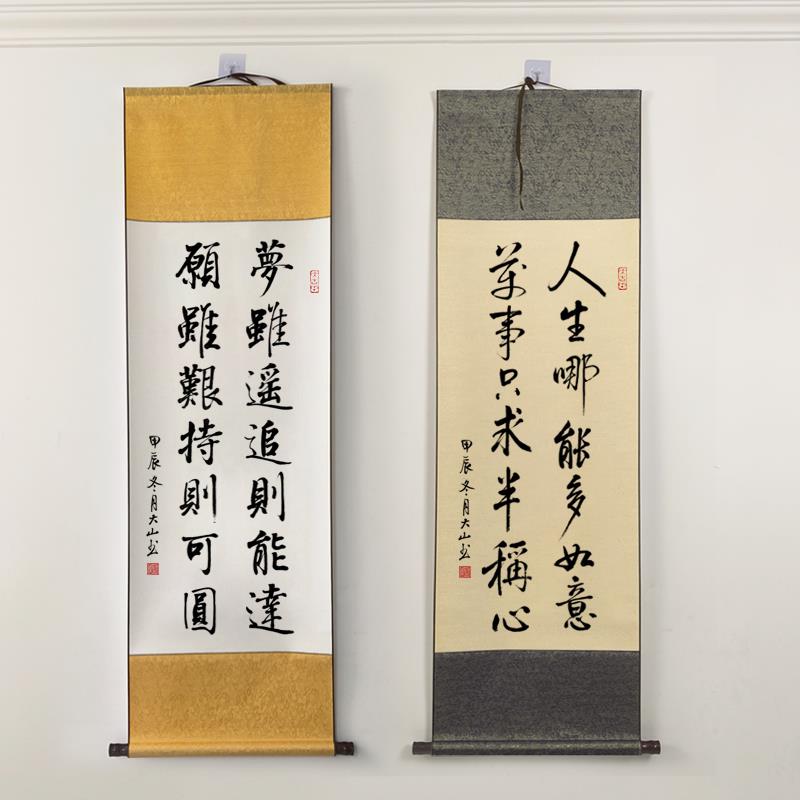 夢雖遥追則能達
願雖艱持則可圓
甲辰冬月大山书
人生哪能多如意
萬事只求半稱心
甲辰冬月大山书